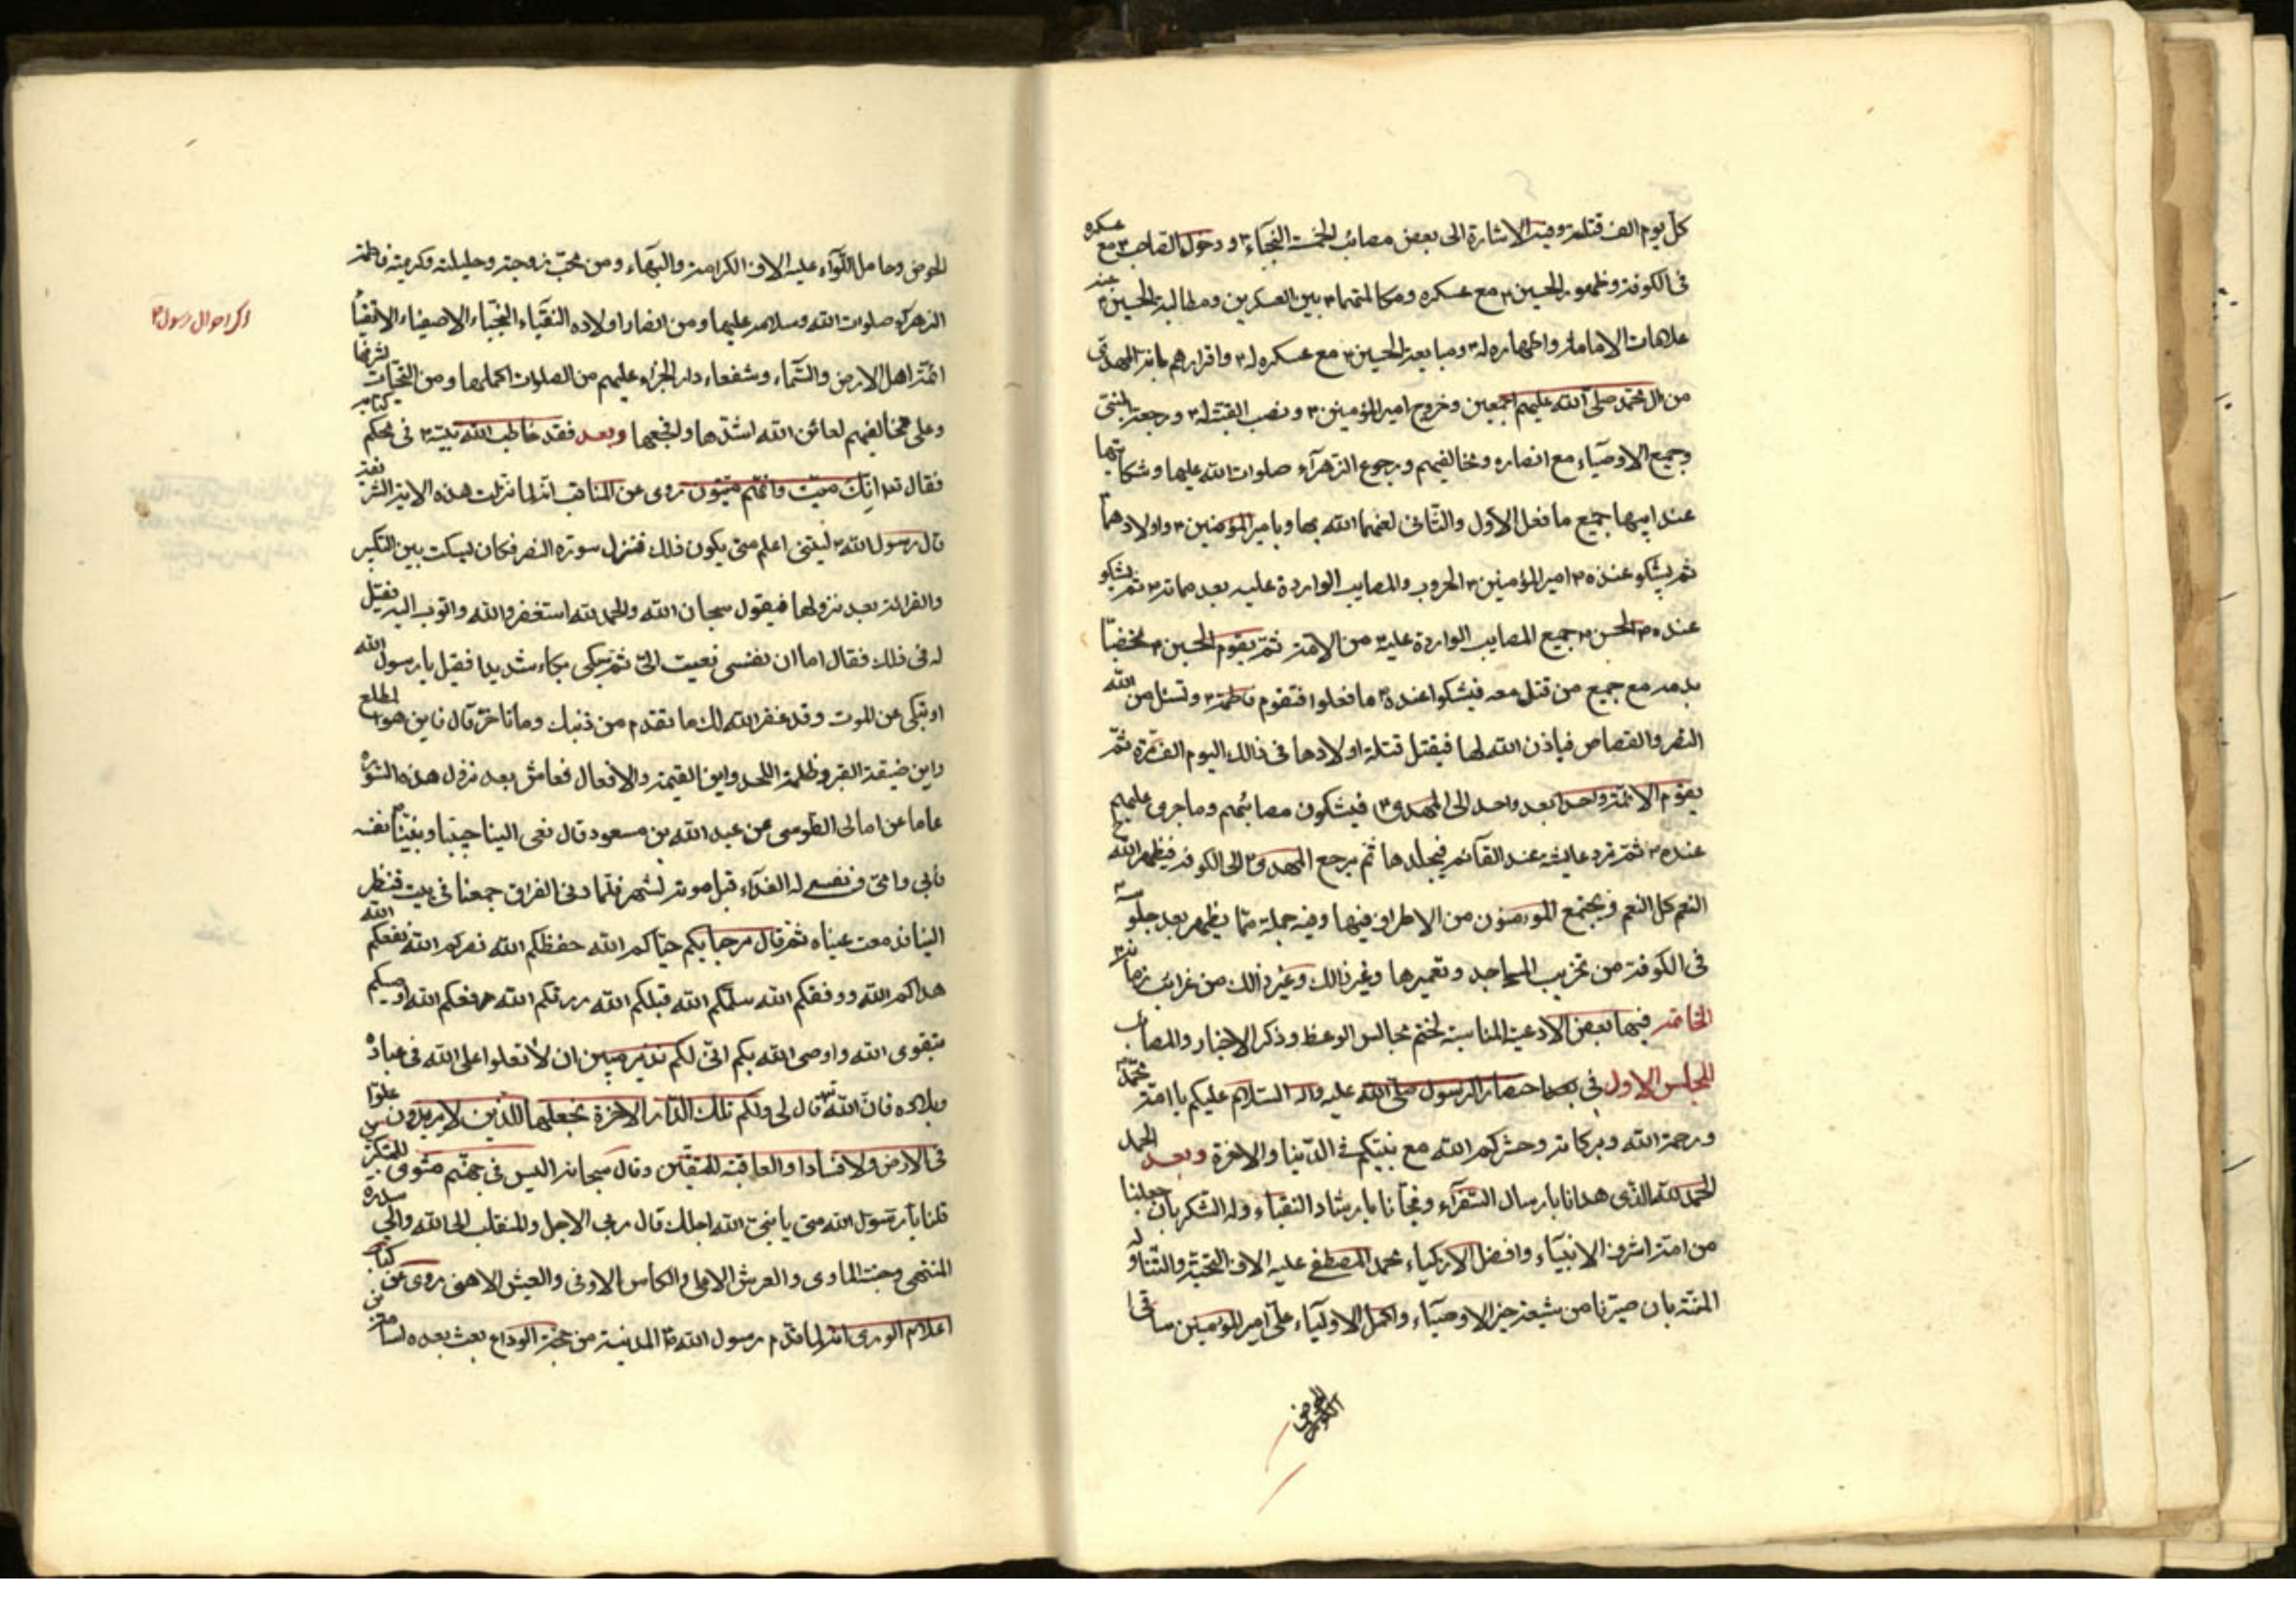 كل يوم الف قتلة وفيه الاشارة الى بعض مصائب الخمسة النجباء ٣ و دخول الصاحب ٣ مع عسكره
فى الكوفة وظهور الحسين ٣ مع عسكره ومكالمتهما ٣ بين العسكرين ومطالبة الحسين ٣ عنه
علامات الامامة واظهاره له ٣ ومبايعة الحسين ٣ مع عسكره له ٣ واقرارهم بانه المهدى
من ال محمد صلى الله عليهم اجمعين وخروج امير المؤمنين ٣ ونصب القبة له ٣ ورجعة النبى
وجميع الاوصياء مع انصاره ومخالفيهم ورجوع الزهرآء صلوات الله عليها وشكايتها
عند ابيها جميع ما فعل الاول والثانى لعنهما الله بها وبامير المؤمنين ٣ واولادهما
ثم يشكو عنده ٣ امير المؤمنين ٣ الحروب والمصايب الواردة عليه بعد مماته ٣ ثم يشكو
عنده ٣ الحسن ٣ جميع المصايب الواردة عليه من الامة ثم يقوم الحسين ٣ مخضبا
بدمه مع جميع من قتل معه فيشكوا عنده ٣ ما فعلوا فتقوم فاطمة ٣ وتسئل من الله
النصر والقصاص فياذن الله لها فيقتل قتلة اولادها فى ذالك اليوم الف مرة ثم
يقوم الائمة واحدا بعد واحد الى المهدى ٣ فيشكون مصائبهم وما جرى عليهم
عنده ٣ ثم ترد عايشة عند القآئم فيجلدها ثم يرجع المهدى ٣ الى الكوفة فيظهر الله
النعم كل النعم ويجتمع المؤمنون من الاطراف فيها وفيه جملة مما يظهر بعد جلوسه
فى الكوفة من تخريب المساجد وتعميرها وغير ذالك وغير ذالك من غرائب زمانه
الخاتمة فيها بعض الادعية المناسبة لختم مجالس الوعظ وذكر الاخبار والمصاب
المجلس الاول فى احتضار الرسول صلى الله عليه واله السلام عليكم يا امة محمد
ورحمة الله وبركاته وحشركم الله مع نبيكم فى الدنيا والاخرة وبعد الحمد
الحمد لله الذى هدانا بارسال السفرآء ونجانا بارشاد النقباء وله الشكر بان جعلنا
من امة اشرف الانبيآء وافضل الازكياء محمد المصطفى عليه الاف التحية والثنا وله
المنة بان صيرنا من شيعة خير الاوصيآء واكمل الاوليآء على امير المؤمنين ساقى
الحوض
الحوض وحامل اللوآء عليه الاف الكرامة والبهآء ومن محب زوجته وحليلته وكريمته فاطمة
الزهرآء صلوات الله وسلامه عليها ومن انصار اولاده النقباء النجباء الاصفياء الاتقيا
ائمة اهل الارض والسمآء وشفعاء دار الجزاء عليهم من الصلوات اكملها ومن التحيات اشرفها
وعلى مخالفيهم لعائن الله اشدها وافجعها وبعد فقد خاطب الله نبيه ٣ فى محكم كتابه
فقال انك ميت وانهم ميتون روى عن المناقب انه لما نزلت هذه الاية الشريفة
قال رسول الله ٣ ليتنى اعلم متى يكون ذلك فنزل سورة النصر فكان يسكت بين التكبير
والقرائة بعد نزولها فيقول سبحان الله والحمد لله استغفر والله واتوب اليه فقيل
له فى ذلك فقال اما ان نفسى نعيت الى ثم بكى بكاء شديدا فقيل يا رسول الله
او تبكى من الموت وقد غفر الله لك ما تقدم من ذنبك وما تاخر قال فاين هول المطلع
واين ضيقة القبر وظلمة اللحد واين القيمة والاهوال فعاش بعد نزول هذه السورة
عاما عن امالى الطوسى عن عبد الله بن مسعود قال نعى الينا حبيبنا ونبينا نفسه
فابى وامى ونفسى له الفدآء قبل موته لشهر فلما دنى الفراق جمعنا فى بيت فنظر
الينا فدمعت عيناه ثم قال مرحبا بكم حياكم الله حفظكم الله نصركم الله نفعكم الله
هداكم الله ووفقكم الله سلمكم الله قبلكم الله رزقكم الله رفعكم الله اوصيكم
بتقوى الله واوصى الله بكم انى لكم نذير مبين ان لا تعلوا على الله فى عباده
وبلاده فان الله قال لى ولكم تلك الدار الاخرة نجعلها للذين لا يريدون علوا
فى الارض ولا فسادا والعاقبة للمتقين وقال سبحانه اليس فى جهنم مثوى للمتكبرين
قلنا يا رسول الله متى يا نبى الله اجلك قال دنى الاجل والمنقلب الى الله والى سدرة
المنتهى وجنة الماوى والعرش الاعلى والكاس الاوفى والعيش الاهنى روى عن كتاب
اعلام الورى انه لما قدم رسول الله ٣ المدينة من حجة الوداع بعث بعده اسامة بن
ذكر احوال رسول ٣